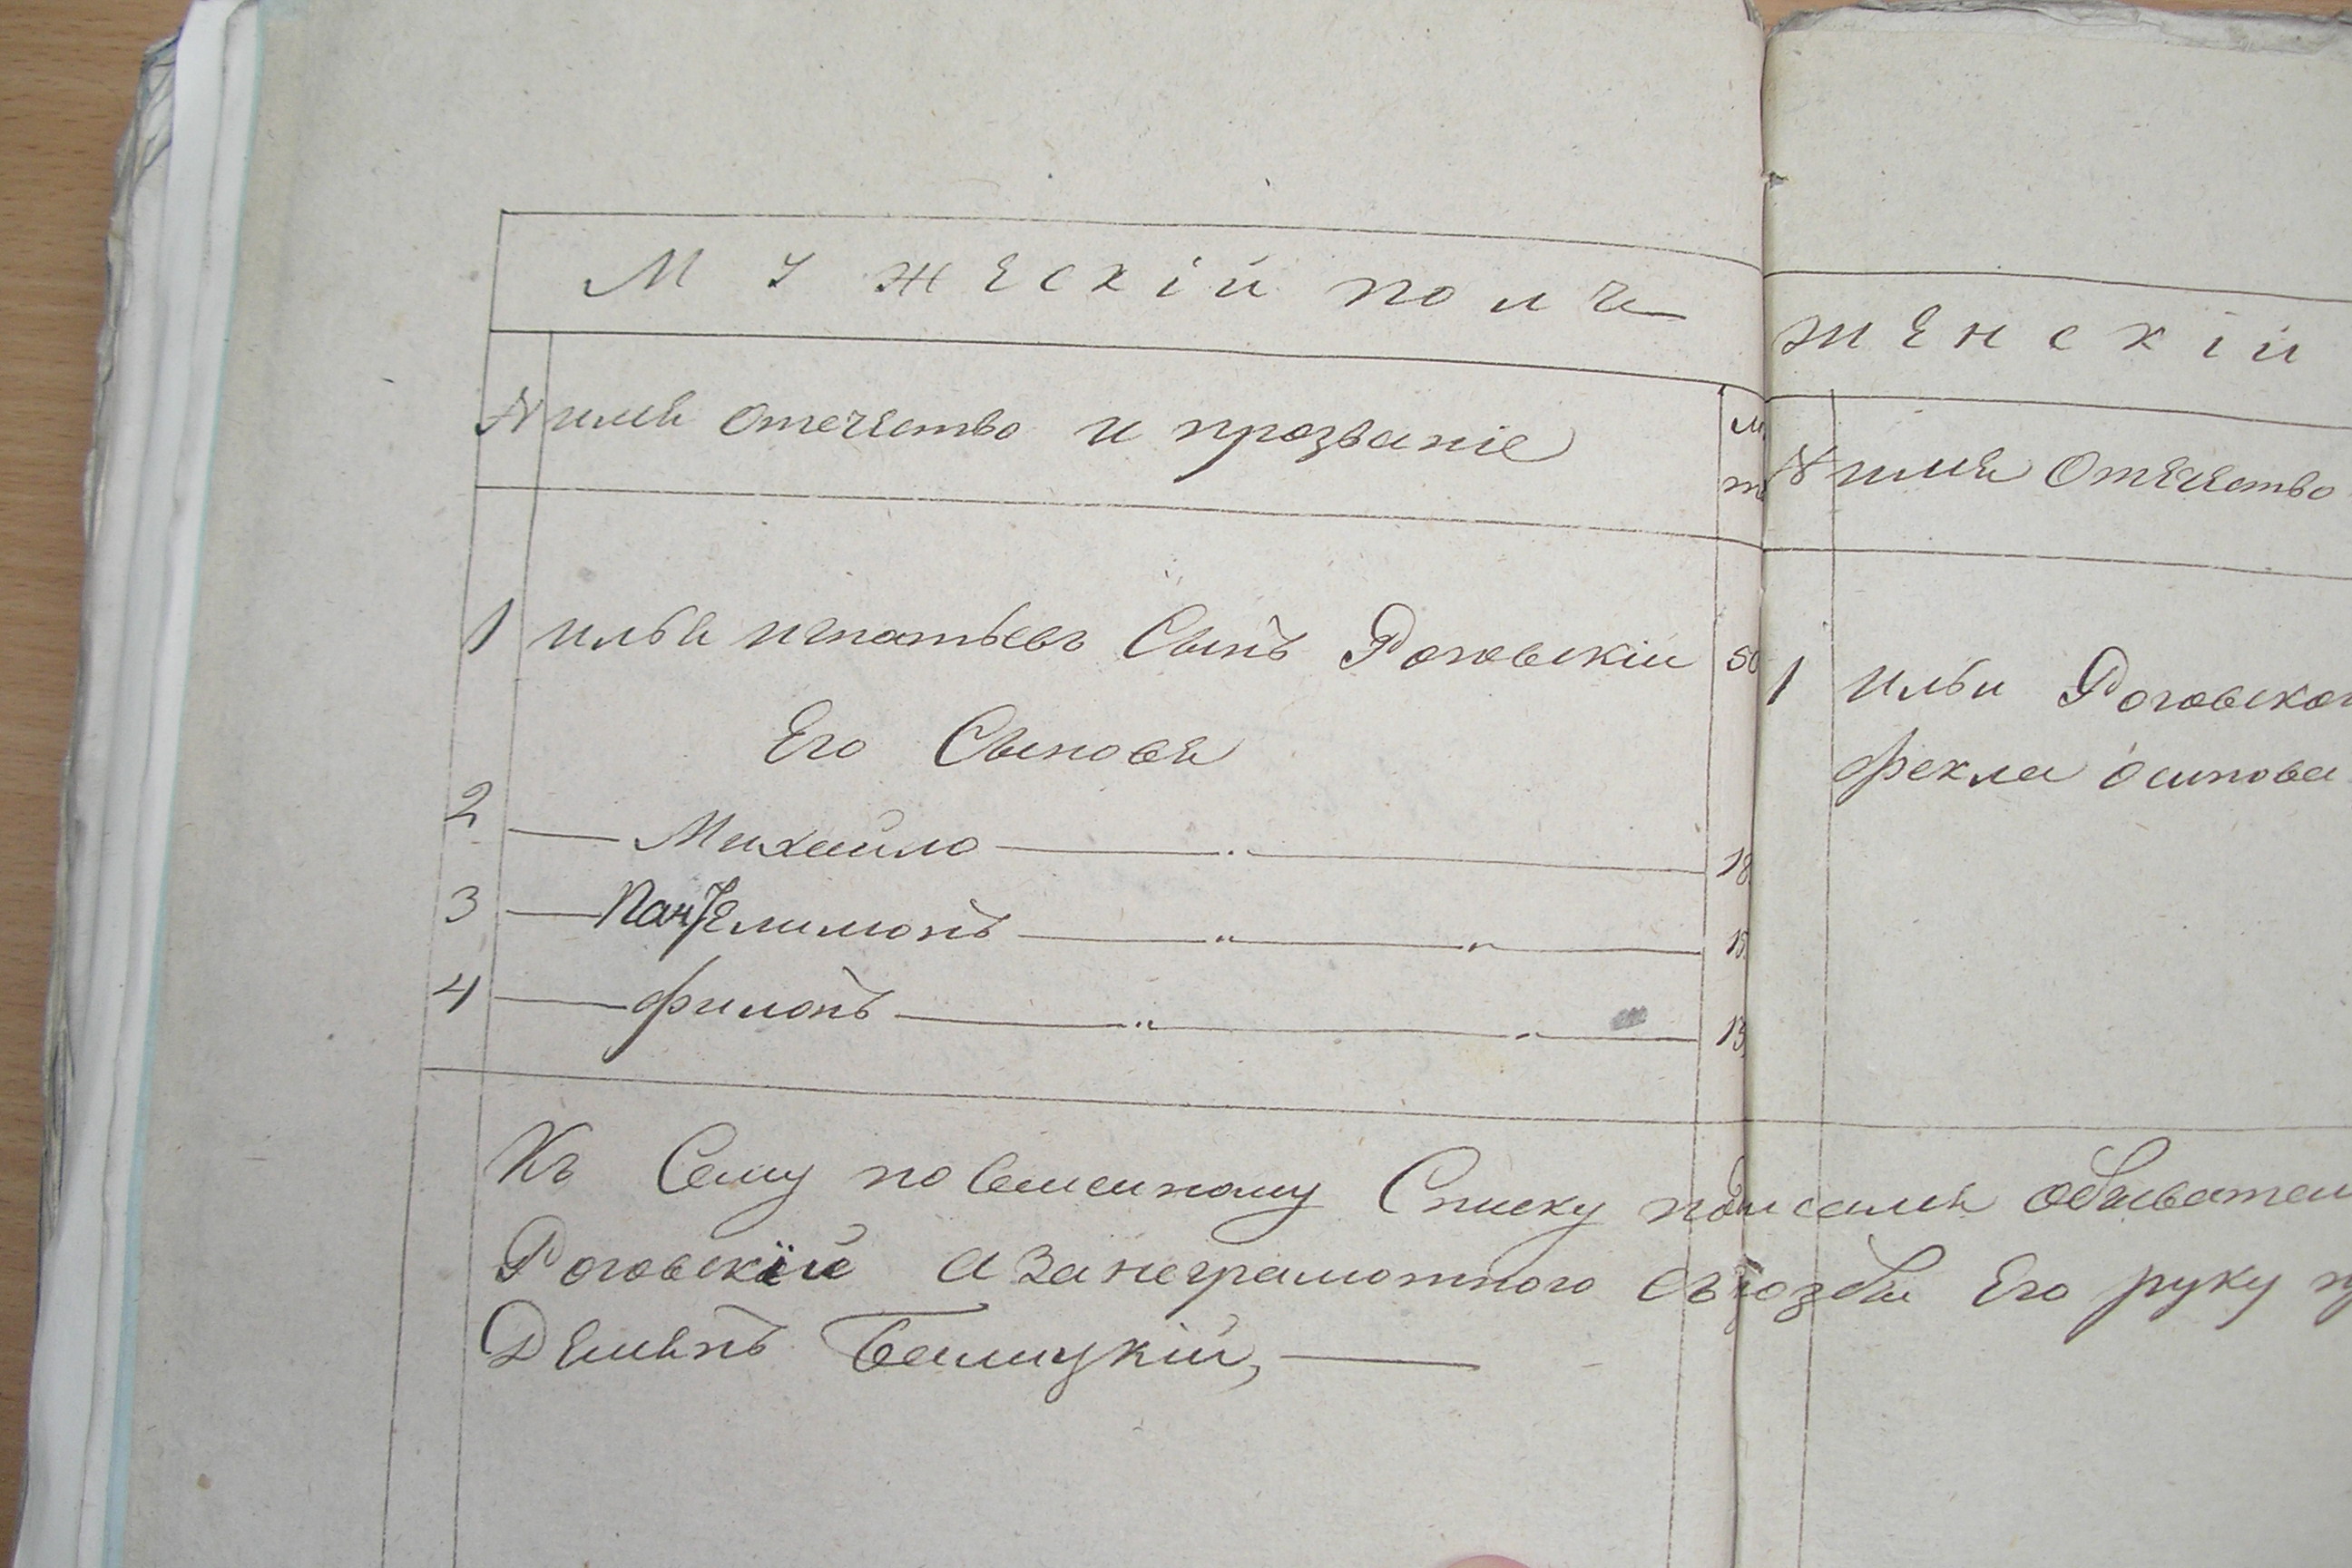 Мужескій полъ
№ имя отечество и прозваніе
1 илья игнатьевъ Сынъ Роговскій 50
Его Сыновя
2 Михайло 18.
3 Пантелимонъ 15.
4 филонъ 13.
Къ Сему посемейному Списку
Роговскій а за неграмотного его руку
Демянъ Белицкій,
женскій
№ имя Отечество
1 ильи
фекла осипова